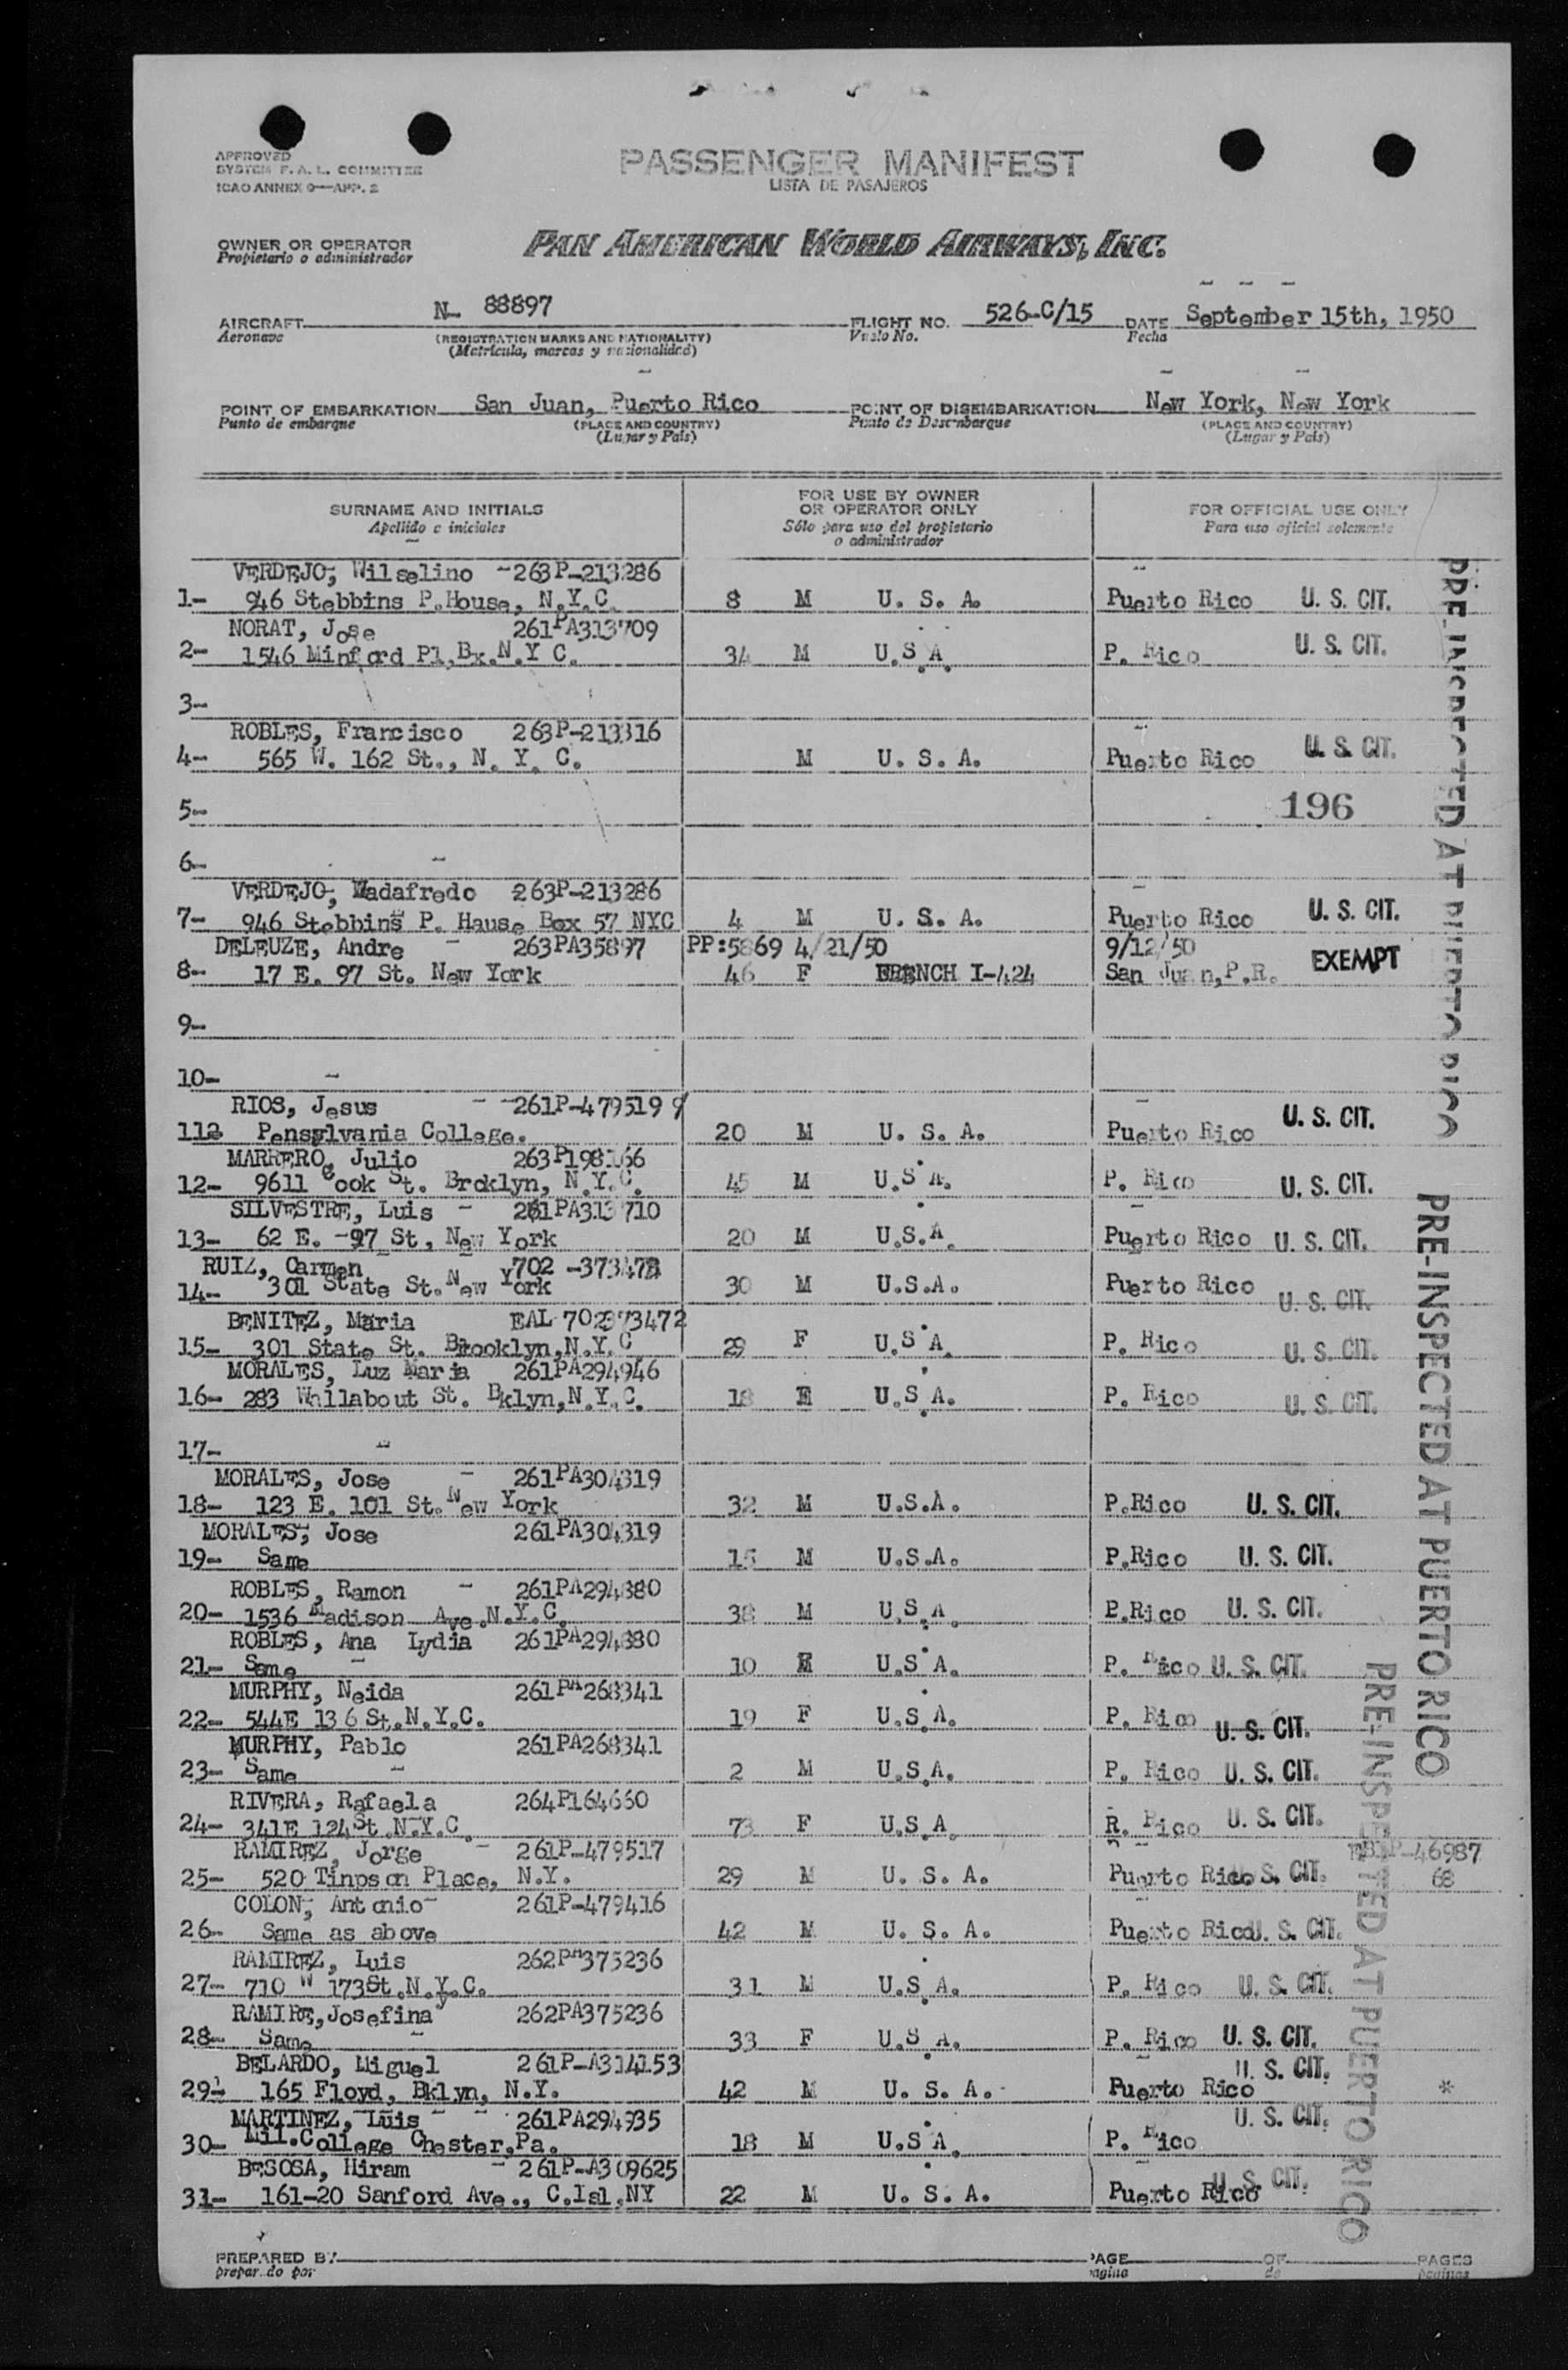 APPROVED
SYSTEM F. A. L. COMMITTEE
ICAO ANNEX 9—APP. 2
PASSENGER MANIFEST
LISTA DE PASAJEROS
OWNER OR OPERATOR
Propietario o administrador
PAN AMERICAN WORLD AIRWAYS, INC.
AIRCRAFT N- 88897 FLIGHT NO. 526-C/15 DATE September 15th, 1950
Aeronave (REGISTRATION MARKS AND NATIONALITY) Vuelo No. Fecha
(Matrícula, marcas y nacionalidad)
POINT OF EMBARKATION San Juan, Puerto Rico POINT OF DISEMBARKATION New York, New York
Punto de embarque (PLACE AND COUNTRY) Punto de Desembarque (PLACE AND COUNTRY)
(Lugar y País) (Lugar y País)
SURNAME AND INITIALS
Apellido e iniciales
FOR USE BY OWNER
OR OPERATOR ONLY
Sólo para uso del propietario
o administrador
FOR OFFICIAL USE ONLY
Para uso oficial solamente
VERDEJO, Wilselino -263P-213286
1- 946 Stebbins P.House, N.Y.C. 8 M U. S. A. Puerto Rico U. S. CIT.
NORAT, Jose 261PA313709
2- 1546 Minford Pl,Bx.N.Y C. 34 M U.S.A. P. Rico U. S. CIT.
3-
ROBLES, Francisco 263P-213316
4- 565 W. 162 St., N. Y. C. M U. S. A. Puerto Rico U. S. CIT.
5- 196
6-
VERDEJO, Wadafredo 263P-213286
7- 946 Stebbins P. Hause Box 57 NYC 4 M U. S. A. Puerto Rico U. S. CIT.
DELEUZE, Andre - 263PA35897 PP:5869 4/21/50 9/12/50
8- 17 E. 97 St. New York 46 F FRENCH I-424 San Juan,P.R. EXEMPT
9-
10-
RIOS, Jesus - -261P-479519
11- Pensylvania College. 20 M U. S. A. Puerto Rico U. S. CIT.
MARRERO, Julio 263P198166
12- 9611 Cook St. Brcklyn, N.Y.C. 45 M U.S.A. P. Rico U. S. CIT.
SILVESTRE, Luis - 261PA313710
13- 62 E. -97 St, New York 20 M U.S.A. Puerto Rico U. S. CIT.
RUIZ, Carmen 702 -373472
14- 301 State St. New York 30 M U.S.A. Puerto Rico U. S. CIT.
BENITEZ, Maria EAL 702373472
15- 301 State St. Brooklyn,N.Y.C 29 F U.S.A. P. Rico U. S. CIT.
MORALES, Luz Maria 261PA294946
16- 283 Wallabout St. Bklyn,N.Y.C. 18 F U.S.A. P. Rico U. S. CIT.
17-
MORALES, Jose - 261PA304319
18- 123 E. 101 St. New York 32 M U.S.A. P.Rico U. S. CIT.
MORALES, Jose 261PA304319
19- Same 15 M U.S.A. P.Rico U. S. CIT.
ROBLES, Ramon - 261PA294880
20- 1536 Madison Ave.N.Y.C. 38 M U.S.A. P.Rico U. S. CIT.
ROBLES, Ana Lydia 261PA294880
21- Same 10 F U.S.A. P. Rico U. S. CIT.
MURPHY, Neida 261PA268341
22- 544E 136 St.N.Y.C. 19 F U.S.A. P. Rico U. S. CIT.
MURPHY, Pablo 261PA268341
23- Same 2 M U.S.A. P. Rico U. S. CIT.
RIVERA, Rafaela 264P164660
24- 341E 124St.N.Y.C. 73 F U.S.A. R. Rico U. S. CIT.
RAMIREZ, Jorge - 261P-479517 -46987
25- 520 Tinpson Place, N.Y. 29 M U. S. A. Puerto Rico U. S. CIT. 68
COLON, Antonio 261P-479416
26- Same as above 42 M U. S. A. Puerto Rico U. S. CIT.
RAMIREZ, Luis 262PA375236
27- 710 W 173St.N.Y.C. 31 M U.S.A. P. Rico U. S. CIT.
RAMIRE,Josefina 262PA375236
28- Same 33 F U.S.A. P. Rico U. S. CIT.
BELARDO, Miguel 261P-A314153 U. S. CIT.
29- 165 Floyd, Bklyn, N.Y. 42 M U. S. A. Puerto Rico *
MARTINEZ, Luis - - 261PA294935 U. S. CIT.
30- Mil.College Chester,Pa. 18 M U.S.A. P. Rico
BESOSA, Hiram - 261P-A309625
31- 161-20 Sanford Ave., C.Isl,NY 22 M U. S. A. Puerto Rico U. S. CIT.
PRE-INSPECTED AT PUERTO RICO
PRE-INSPECTED AT PUERTO RICO
PRE-INSPECTED AT PUERTO RICO
PREPARED BY PAGE OF PAGES
preparado por página de páginas